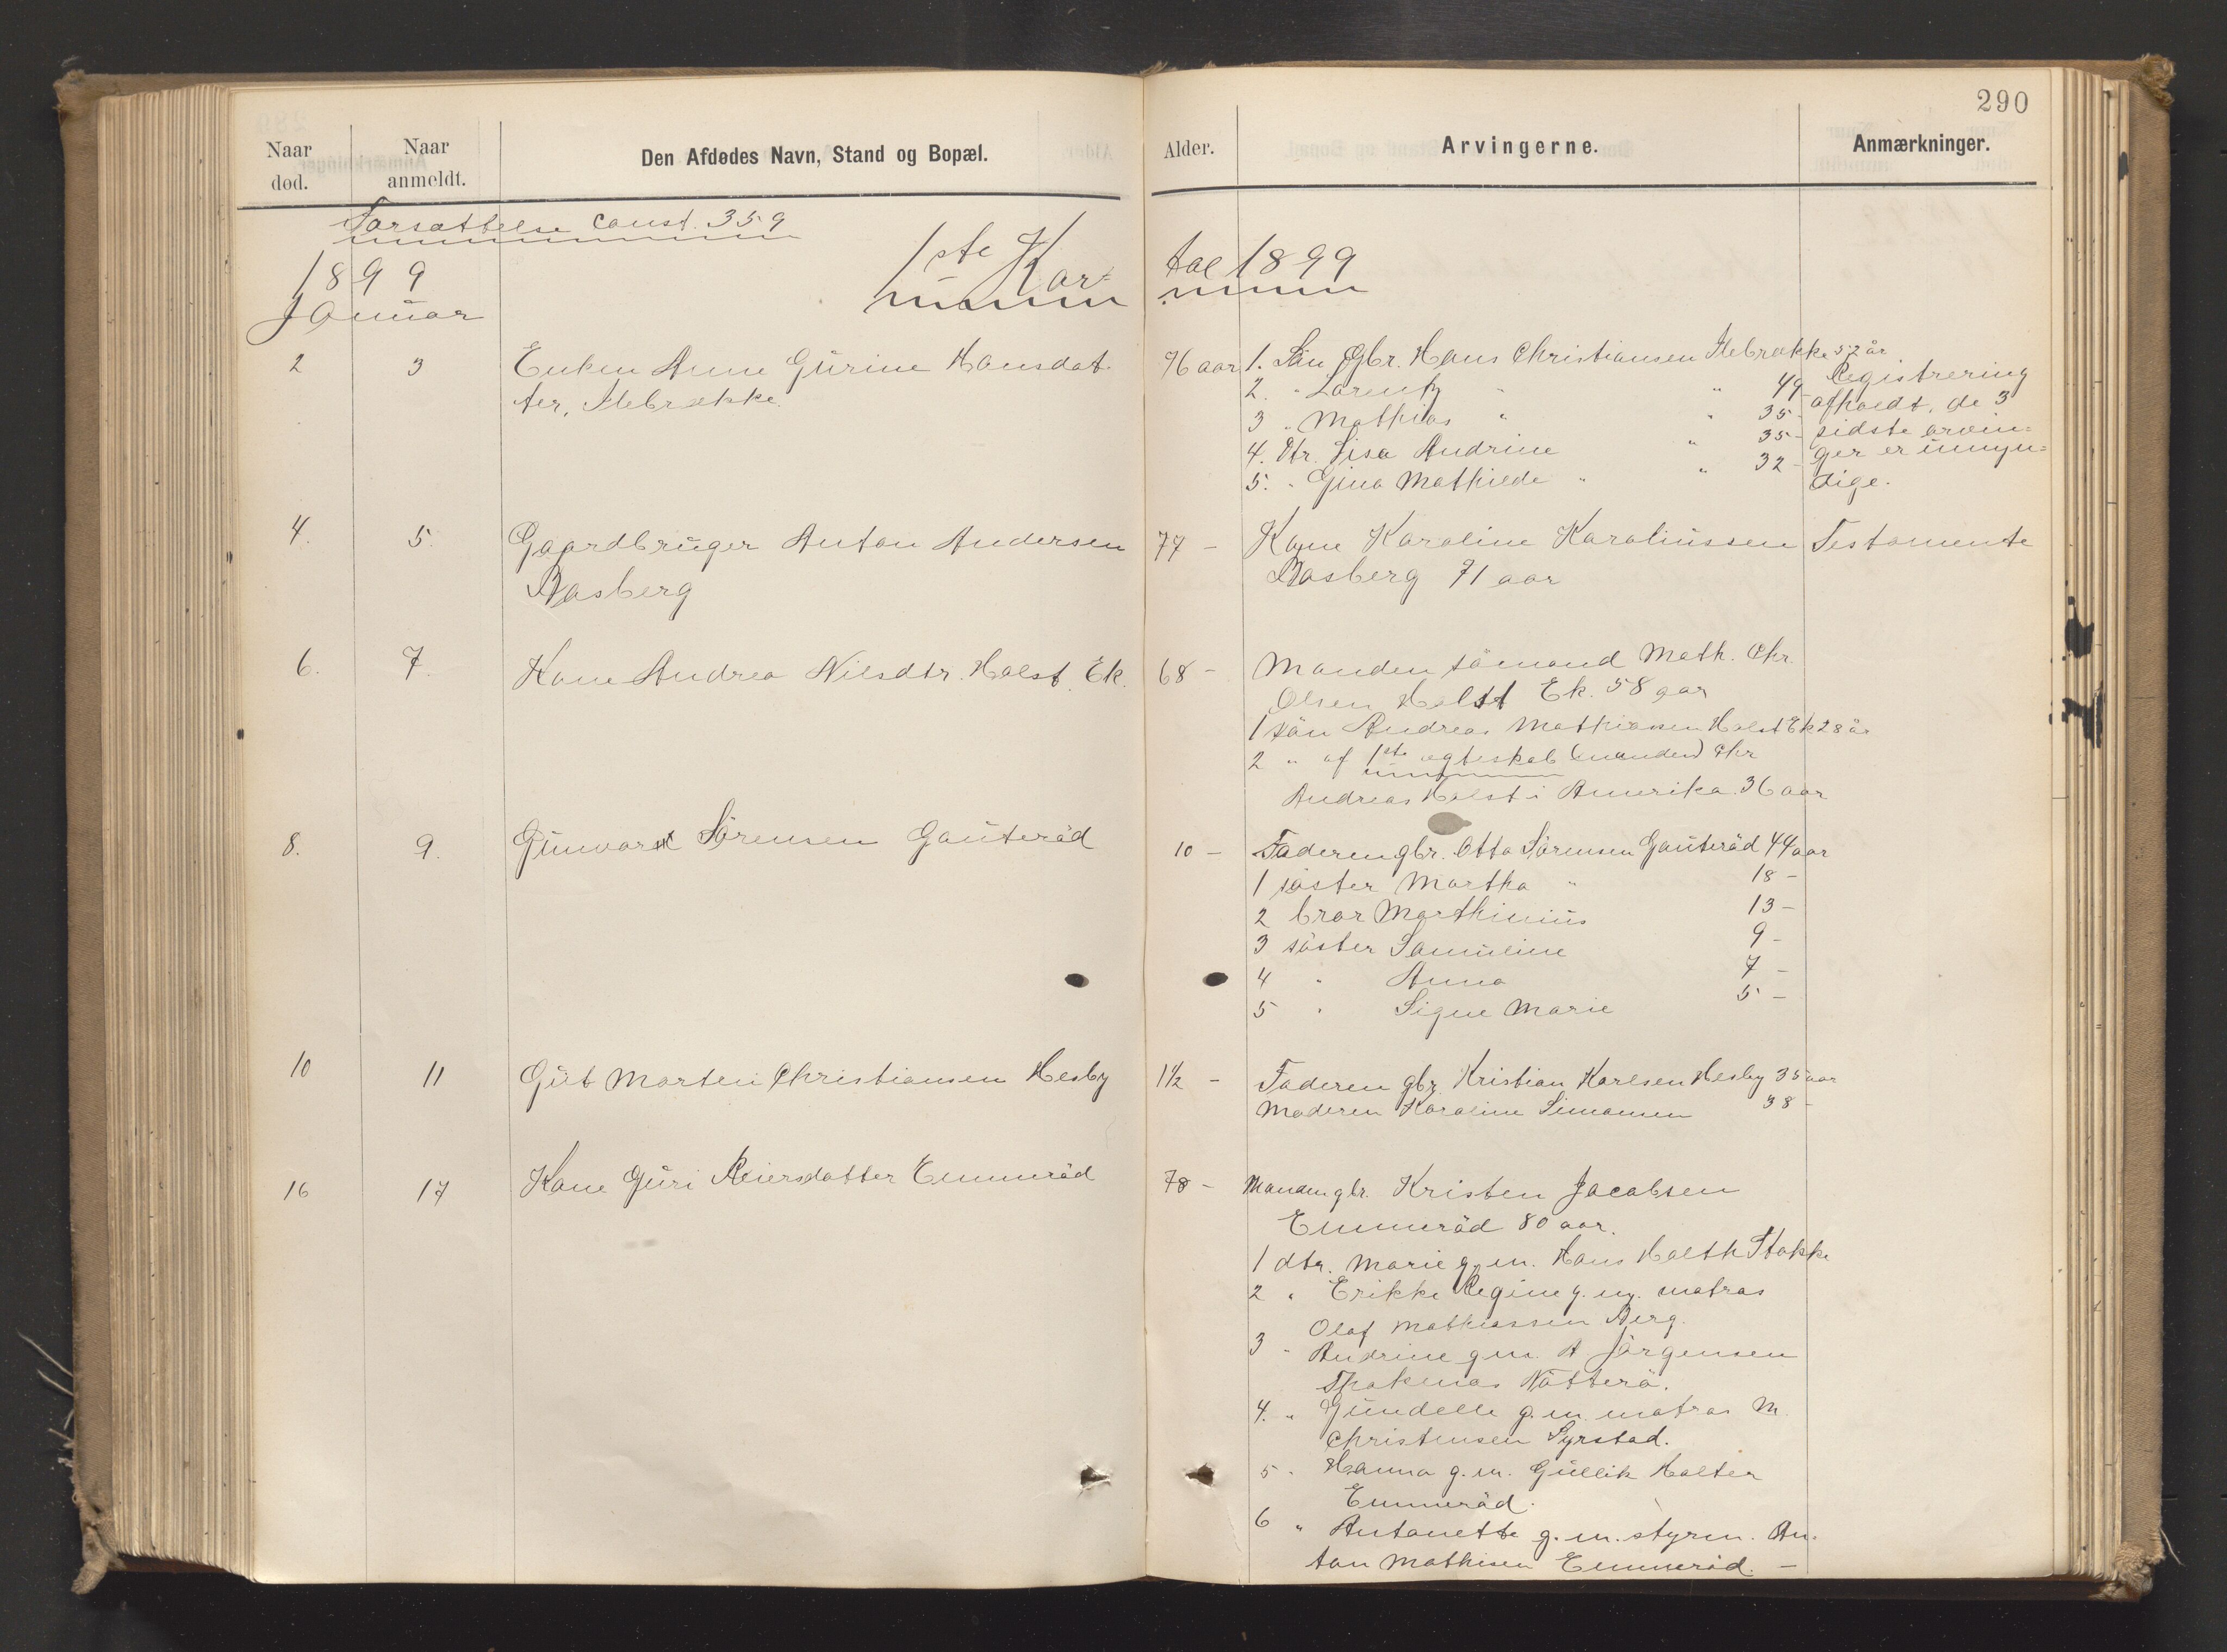 290
Naar død.
Naar anmeldt.
Den Afdødes Navn, Stand og Bopæl.
Alder.
Arvingerne.
Anmærkninger.
Forsættelse const. 359
1899
1ste Kar- tal 1899
Januar
2 3 Enken Anne Gurine Hansdat- 76 aar
ter, Ilebrække.
1. Sön Gbr. Hans Christiansen Ilebrække 52 år
2. " Lorentz " " 49 -
3 " Mathias " " 35 -
4. Dtr. Lisa Andrine " 35 -
5. " Gina Mathilde " " 32 -
Registrering
afholdt, de 3
sidste arvin-
ger er umyn-
dige.
4. 5. Gaardbruger Anton Andersen 77 - Kone Karoline Karoliussen Testamente
Basberg Basberg 71 aar
6. 7. Kone Andrea Nilsdtr. Holst Ek. 68 - Manden sömand Math. Chr.
Olsen Holst Ek. 58 aar
1 sön Andreas Mathiassen Holst Ek 28 år
2 " af 1ste ægteskab (manden) Chr
Andreas Holst i Amerika 36 aar
8. 9. Gunvart Sörensen Gauteråd 10 - Faderen gbr. Otto Sörensen Gauteråd 44 aar
1 söster Martha " 18 -
2 bror Marthinius 13 -
3 söster Samuline 9 -
4 " Anna 7 -
5 " Signe Marie 5 -
10 11 Gut Morten Christiansen Hesby 1½ - Faderen gbr. Kristian Karlsen Hesby 35 aar
Moderen Karoline Simonsen 38 -
16 17 Kone Guri Reiersdatter Emmeråd 78 - Manden gbr. Kristen Jacobsen
Emmeråd 80 aar.
1 dtr. Marie g. m. Hans Holth Stokke
2 " Erikke Regine g. m. matros
Olaf Mathiassen Berg.
3 " Andrine g m. A. Jörgensen
Nötterö.
4. " Gundelle g. m. matros M.
Christensen Syrstad.
5 " Hanna g. m. Gullik Holter
Emmeråd.
6 " Antonette g. m. styrm. An-
ton Mathisen Emmeråd. -